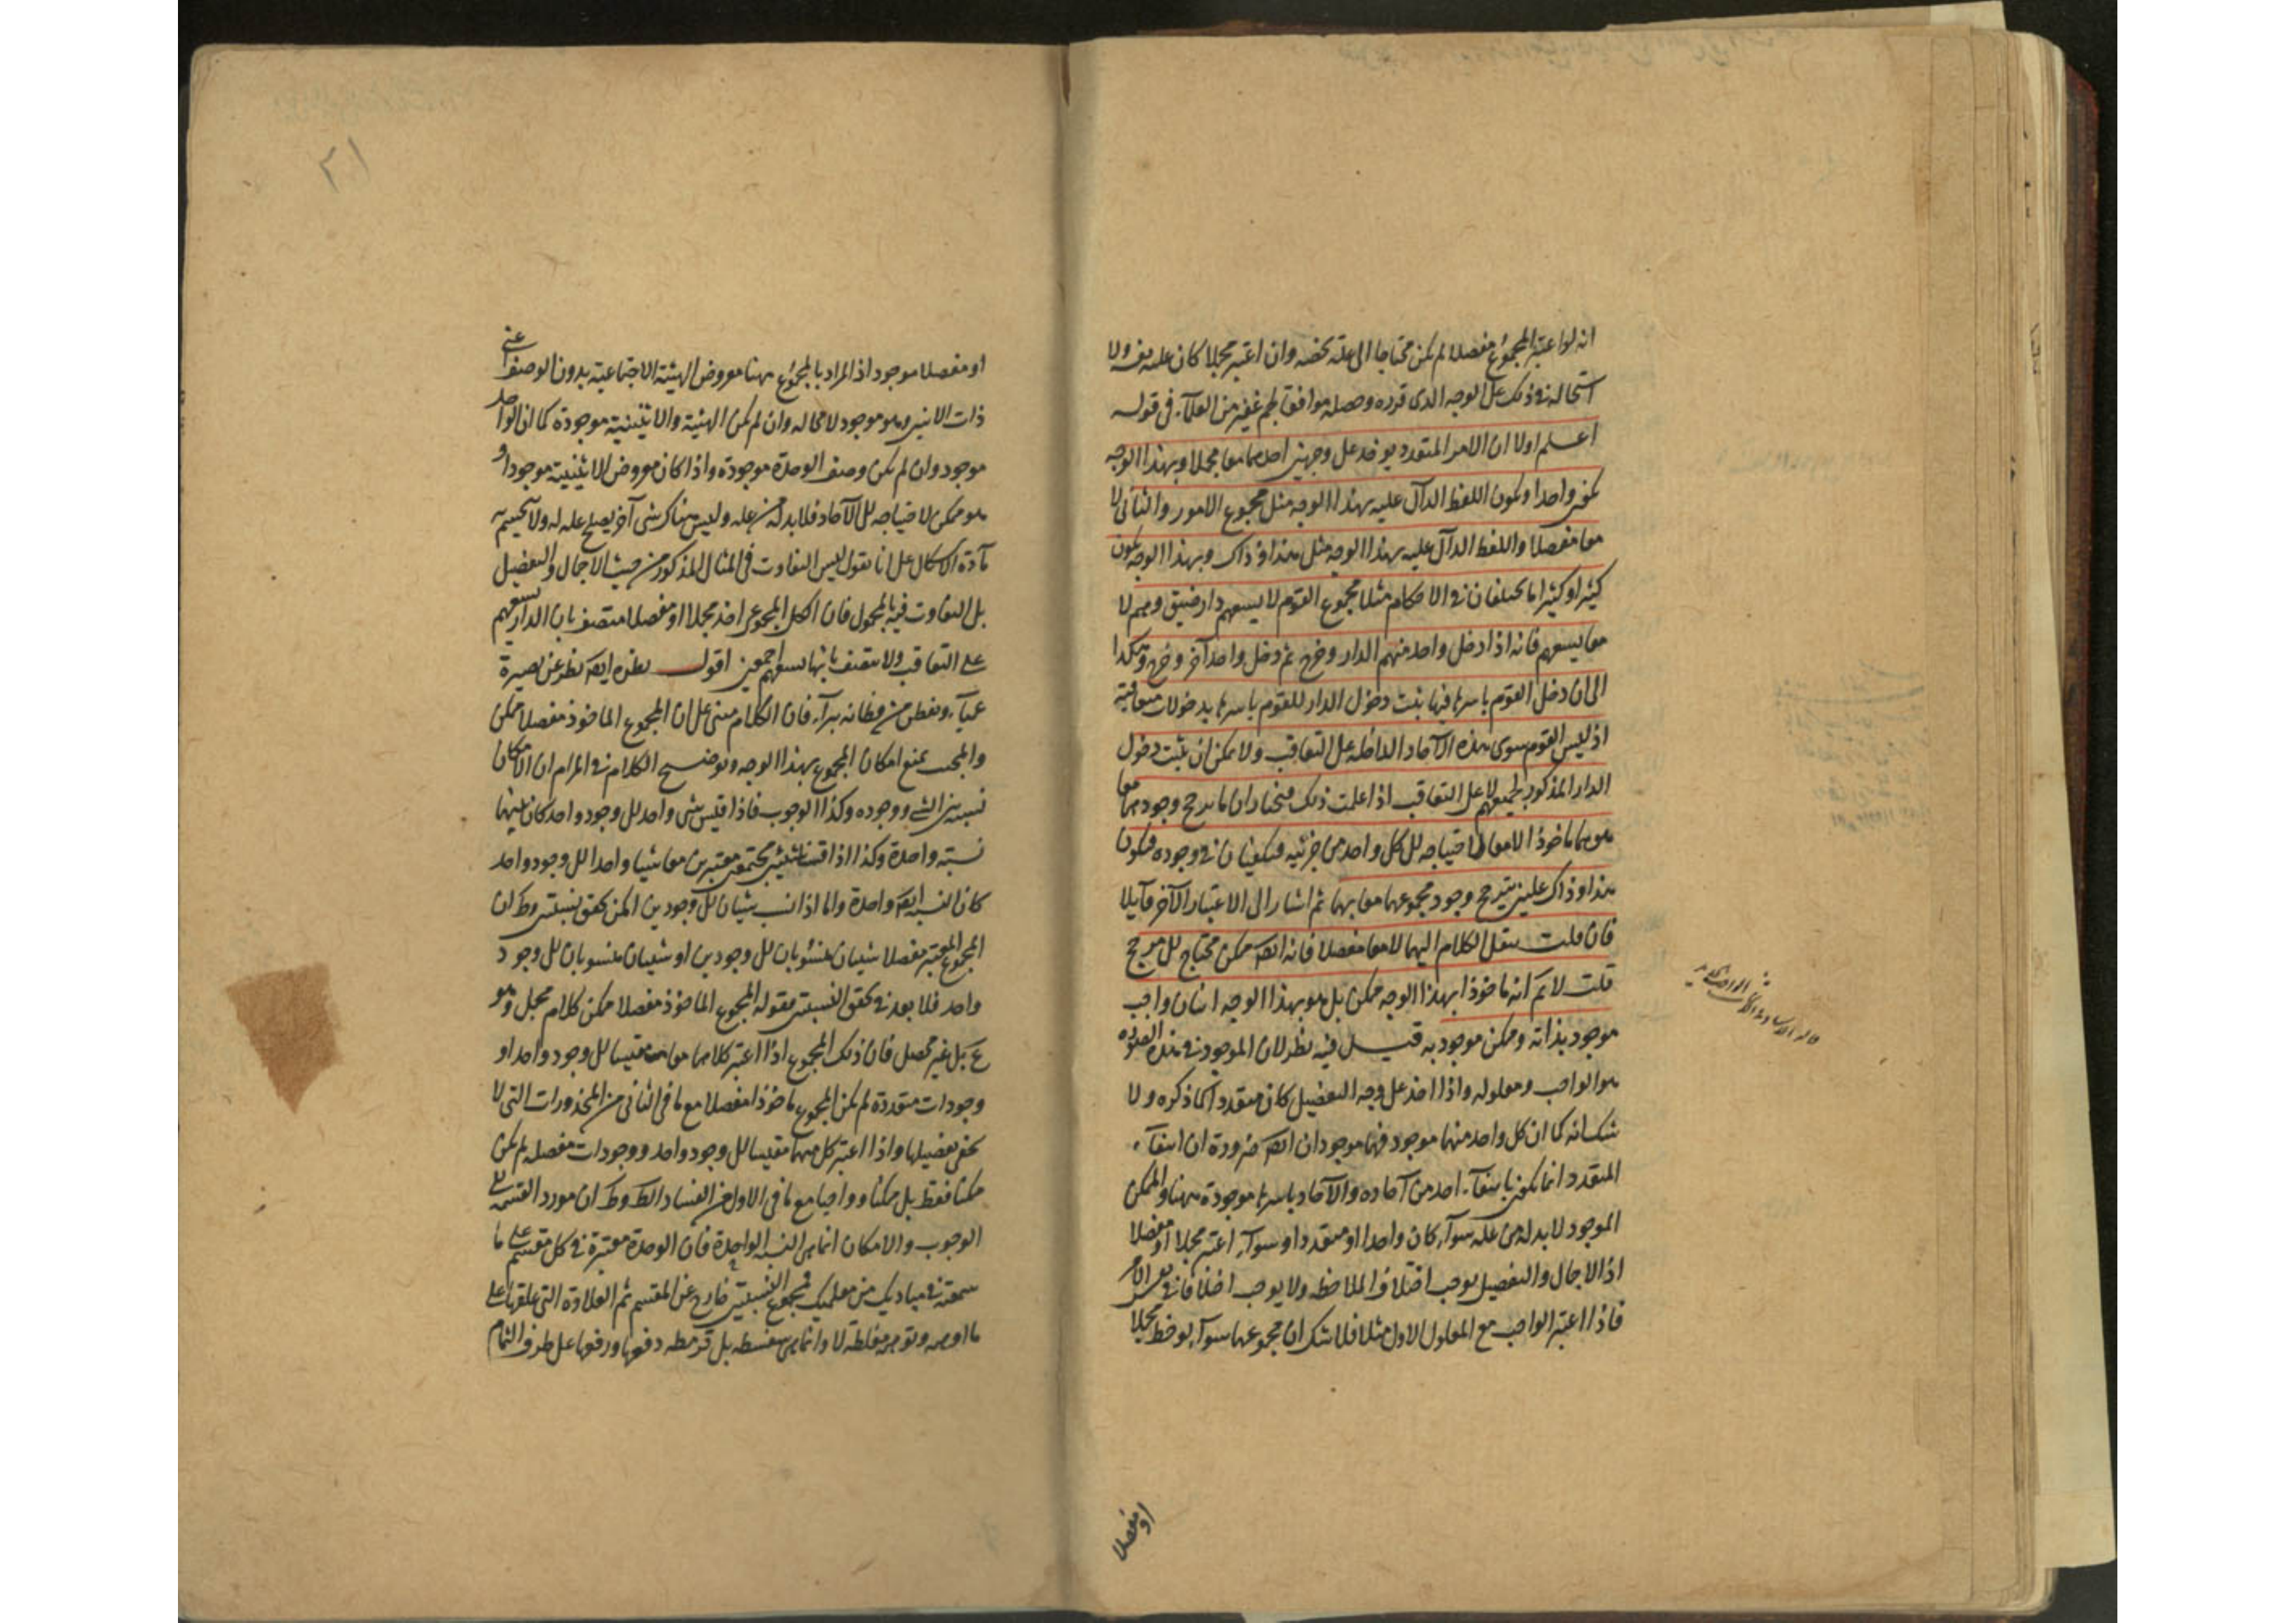 انه لو اعتبر المجموع مفصلا لم يكن محتاجا الى علة تخصه وان اعتبر مجملا كان علته نفسه ولا
استحالة فى ذلك على الوجه الذى قرره وحصله موافقا لجم غفير من العلمآء فى قوله
اعلم اولا ان الامر المتعدد يوخذ على وجهين احدهما معا مجملا وبهذا الوجه
يكون واحدا ويكون اللفظ الدآل عليه بهذا الوجه مثل مجموع الامور والثانى لا
معا مفصلا واللفظ الدآل عليه بهذا الوجه مثل هذا وذاك وبهذا الوجه يكون
كثيرا وكثيرا ما يختلفان فى الاحكام مثلا مجموع القوم لا يسعهم دار ضيق وهم لا
معا يسعهم فانه اذا دخل واحد منهم الدار وخرج ثم دخل واحد آخر وخرج وهكذا
الى ان دخل القوم باسرها فيها يثبت دخول الدار للقوم باسرها بدخولات متعاقبة
اذ ليس القوم سوى هذه الآحاد الداخلة على التعاقب ولا يمكن ان يثبت دخول
الدار المذكور لجميعهم لا على التعاقب اذا علمت ذلك فنختار ان ما يرجح وجودهما معا
هو هما ماخوذا لا معا لاحتياجه لكل واحد من جزئيه فيكفيان فى وجوده فيكون
هذا وذاك علتين يترجح وجود مجموعهما معا بهما ثم اشار الى الاعتبار الآخر قآيلا
فان قلت ننقل الكلام اليهما لا معا مفصلا فانه ايضا ممكن محتاج لل مرجح
قلت لا نم انه ماخوذا بهذا الوجه ممكن بل هو بهذا الوجه اثنان واجب
موجود بذاته وممكن موجود به قيل فيه نظر لان الموجود فى هذه الصورة
هو الواجب ومعلوله واذا اخذ على وجه التفصيل كان متعددا كما ذكره ولا
شك انه كما ان كل واحد منهما موجود فهما موجودان ايضا ضرورة ان انتفآء
المتعدد انما يكون بانتفآء احد من آحاده والآحاد باسرها موجودة ههنا والممكن
الموجود لا بد له من علة سوآء كان واحدا او متعددا وسوآء اعتبر مجملا او مفصلا
اذ الاجمال والتفصيل يوجب اختلاف الملاحظة ولا يوجب اختلافا فى نفس الامر
فاذا اعتبر الواجب مع المعلول الاول مثلا فلا شك ان مجموعهما سوآء لوحظ مجملا
او مفصلا
٢١
او مفصلا موجود اذ المراد بالمجموع ههنا معروض الهيئة الاجتماعية بدون الوصف اعنى
ذات الاثنين وهو موجود لا محالة وان لم يكن الهيئة والاثنينية موجودة كما ان الواحد
موجود وان لم يكن وصف الوحدة موجودة واذا كان معروض الاثنينية موجودا و
هو ممكن لاحتياجه لل الآحاد فلا بد له من علة وليس هناك شى آخر يصلح علة له ولا يحسم به
مآدة الاشكال على انا نقول ليس التفاوت فى المثال المذكور من حيث الاجمال والتفصيل
بل التفاوت فيه بالمحمول فان الكل المجموعى اخذ مجملا او مفصلا متصف بان الدار تسعهم
على التعاقب ولا يتصف بانها تسعهم اجمعين اقول نظره ايضا نظر عن بصيرة
عميآء وتفطن من فطانة بترآء فان الكلام مبنى على ان المجموع الماخوذ مفصلا ممكن
والمجيب يمنع امكان المجموع بهذا الوجه وتوضيح الكلام فى المرام ان الامكان
نسبة بين الشى ووجوده وكذا الوجوب فاذا قيس شى واحد لل وجود واحد كان بينهما
نسبة واحدة وكذا اذا قيس شيئين مجتمعين معتبرين معا شيئا واحدا لل وجود واحد
كان النسبة ايضا واحدة واما اذا نسب شيئان لل وجودين امكن تحقق نسبتين وظ ان
المجموع المعتبر مفصلا شيئان منسوبان لل وجودين او شيئان منسوبان لل وجود
واحد فلا بعد فى تحقق النسبتين فقوله المجموع الماخوذ مفصلا ممكن كلام مجمل وهو
ع بل غير محصل فان ذلك المجموع اذا اعتبر كلاهما معا مقيسا لل وجود واحد او
وجودات متعددة لم يكن المجموع ماخوذا مفصلا مع ما فى الثانى من المحذورات التى لا
يخفى تفصيلها واذا اعتبر كل منهما مقيسا لل وجود واحد ووجودات مفصلة لم يكن
ممكنا فقط بل ممكنا وواجبا مع ما فى الاول من الفساد الظ وظ ان مورد القسمة الى
الوجوب والامكان انما هى النسبة الواحدة فان الوحدة معتبرة فى كل مقسم على ما
سمعته فى مباديك من معلميك فمجموع النسبتين خارج عن المقسم ثم العلاوة التى علقها على
ما اوهمه وتوهمه مغلطة لا وانما هى سفسطة بل قرمطة دفعها ورفعها على طرف الثمام